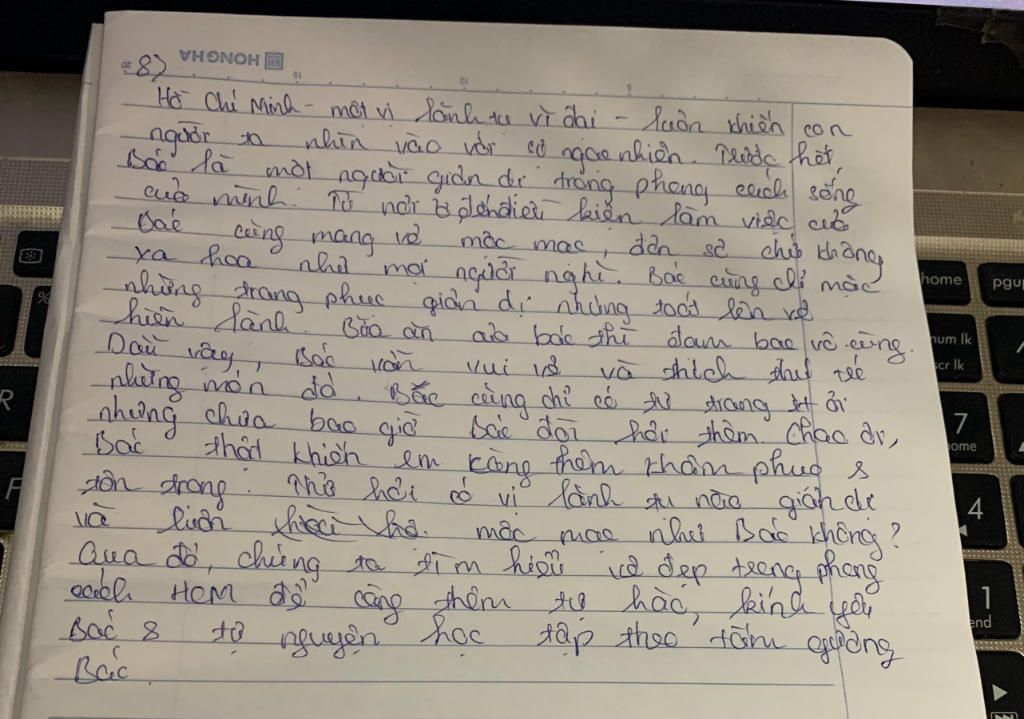 HONG HA
8)
Hồ Chí Minh - một vị lãnh tụ vĩ đại - luôn khiến con
người ta nhìn vào với sự ngạc nhiên. Trước hết,
Bác là một người giản dị trong phong cách sống
của mình. Từ nơi ở đến điều kiện làm việc của
Bác cũng mang vẻ mộc mạc, đơn sơ chứ không
xa hoa như mọi người nghĩ. Bác cũng chỉ mặc
những trang phục giản dị nhưng toát lên vẻ
hiền lành. Bữa ăn của bác thì đạm bạc vô cùng.
Dẫu vậy, Bác vẫn vui vẻ và thích thú
những món đó. Bác cũng chỉ có tư trang ít ỏi
nhưng chưa bao giờ Bác đòi hỏi thêm. Chao ôi,
Bác thật khiến em càng thêm khâm phục &
tôn trọng. Thử hỏi có vị lãnh tụ nào giản dị
và luôn mộc mạc như Bác không?
Qua đó, chúng ta tìm hiểu vẻ đẹp trong phong
cách HCM để càng thêm tự hào, kính yêu
Bác & tự nguyện học tập theo tấm gương
Bác.
home
pgup
num lk
scr lk
7
home
4
1
end
R
F
%